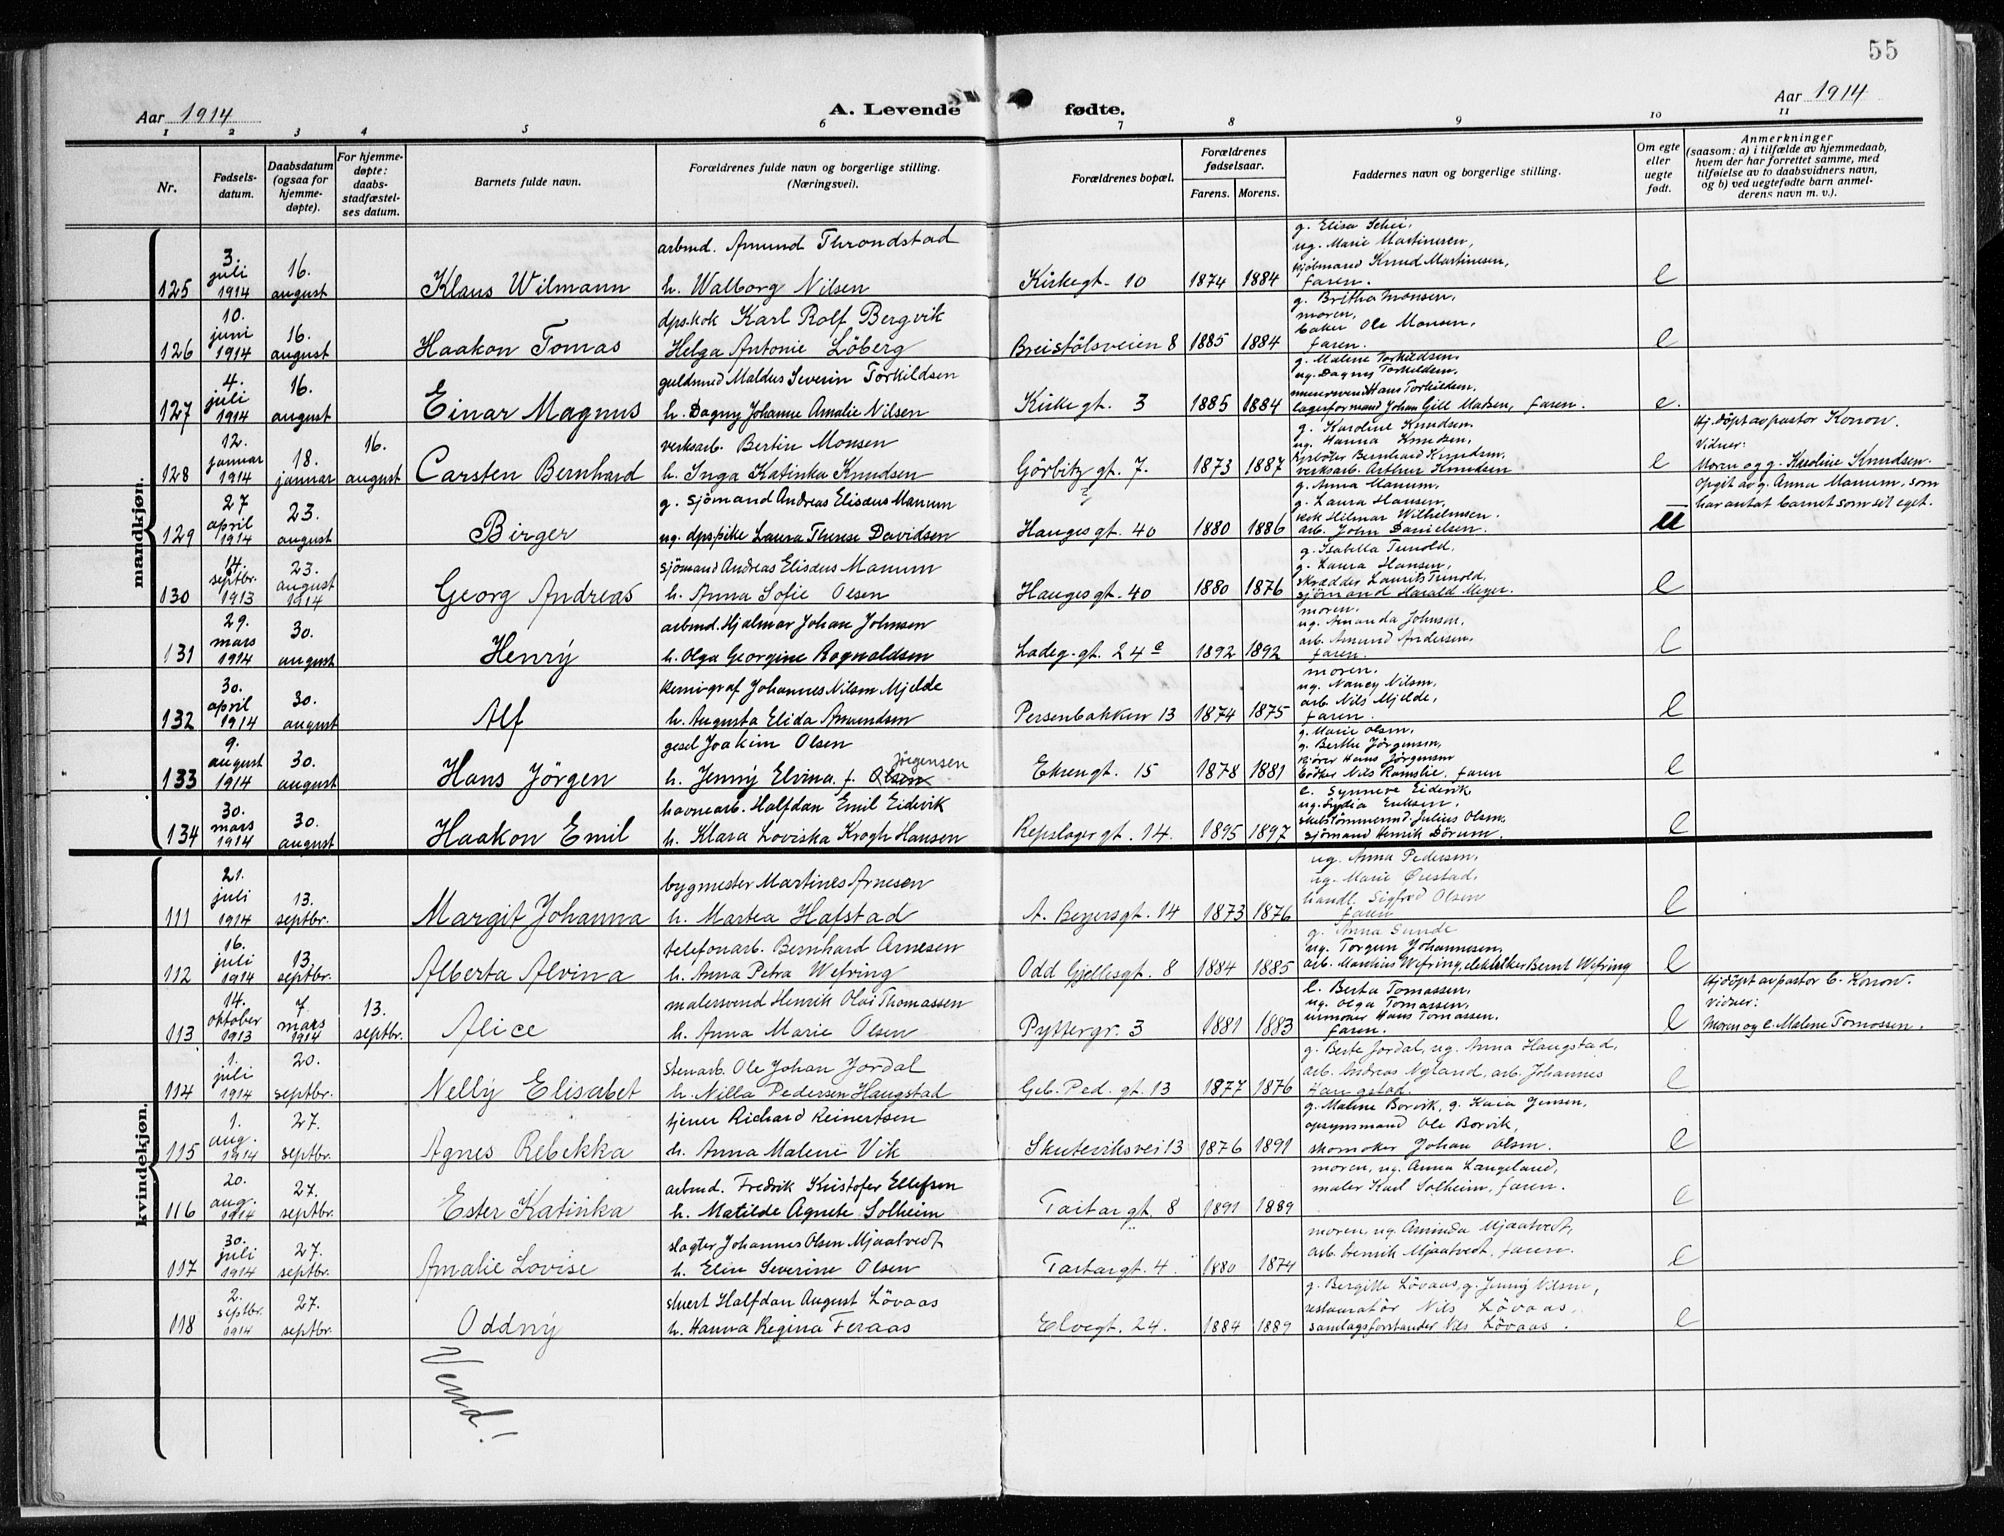 55
Aar 1914
A. Levende fødte.
Aar 1914
1 2 3 4 5 6 7 8 9 10 11
Nr.
Fødsels-
datum.
Daabsdatum
(ogsaa for
hjemme-
døpte).
For hjemme-
døpte:
daabs-
stadfæstel-
ses datum.
Barnets fulde navn.
Forældrenes fulde navn og borgerlige stilling.
(Næringsvei).
Forældrenes bopæl.
Forældrenes
fødselsaar.
Farens. Morens.
Faddernes navn og borgerlige stilling.
Om egte
eller
uegte
født.
Anmerkninger
(saasom: a) i tilfælde av hjemmedaab,
hvem der har forrettet samme, med
tilføielse av to daabsvidners navn,
og b) ved uegtefødte barn anmel-
derens navn m. v.).
mandkjøn.
125
3.
juli
1914
16.
august
Klaus Wilmann
arbmd. Amund Throndstad
h. Walborg Nilsen
Kirkegt. 10
1874 1884
g. Elisa Schei,
ug. Marie Martinesen,
kjøbmand Knud Martinesen,
faren.
e
126
10.
juni
1914
16.
august
Haakon Tomas
dps.kok Karl Rolf Bergvik
Helga Antonie Löberg
Breistölsveien 8
1885 1884
g. Britha Monsen,
moren,
baker Ole Monsen,
faren.
e
127
4.
juli
1914
16.
august
Einar Magnus
guldsmed Maldus Severin Torkildsen
h. Dagny Johanne Amalie Nilsen
Kirkegt. 3
1885 1884
g. Malene Torkildsen,
ug. Dagnes Torkildsen,
Hans Torkildsen,
lagerformand Johan Gill Madsen, faren.
e.
128
12.
januar
1914
18.
januar
16.
august
Carsten Bernhard
verksarb. Bertin Monsen
h. Inga Katinka Knudsen
Görbitz gt. 7.
1873 1887
g. Karoline Knudsen,
ug. Hanna Knudsen,
Bernhard Knudsen,
verksarb. Arthur Knudsen
e
Hj. döpt av pastor Konow.
Vidner:
Moren og g. Karoline Knudsen.
129
27
april
1914
23.
august
Birger
g. sjömand Andreas Elisæus Manum
ug. dps.pike Laura Therese Davidsen
Haugesgt. 40
1880 1886
g. Anna Manum,
g. Laura Hansen,
kok Hilmar Wilhelmsen,
arb. John Danielsen.
U
Opgit av g. Anna Manum, som
har antat barnet som sit eget.
130
14.
septbr.
1913
23.
august
1914
Georg Andreas
sjömand Andreas Elisæus Manum
h. Anna Sofie Olsen
Haugesgt. 40
1880 1876
g. Isabella Tunold,
g. Laura Hansen,
skrædder Laurits Tunold,
sjömand Harald Meyer.
e
131
29.
mars
1914
30.
august
Henrÿ
arbmd. Hjalmar Johan Johnsen
h. Olga Georgine Ragnvaldsen
Ladeg.gt. 24 a
1892 1892
moren,
ug. Amanda Johnsen,
arb. Amund Andersen,
faren.
e
132
30.
april
1914
30.
august
Alf
kemigraf Johannes Nilsen Mjelde
h. Augusta Elida Amundsen
Persenbakken 13
1874 1875
moren,
ug. Nancy Nilsen,
arb. Nils Mjelde,
faren.
e
133
9.
august
1914
30.
august
Hans Jörgen
gesel Joakim Olsen
Jörgensen
h. Jennÿ Elvina f. Olsen
Ekrengt. 15
1878 1881
g. Marie Olsen,
g. Berthe Jörgensen,
Hans Jörgensen
bödker Nils Ramslie, faren
e
134
30.
mars
1914
30.
august
Haakon Emil
havnearb. Halfdan Emil Eidevik
h. Klara Loviska Krogh Hansen
Repslagergt. 14.
1895 1897
e. Synneve Eidevik
ug. Lydia Eriksen,
skibstömmermd. Julius Olsen,
sjömand Henrik Dörum.
e
kvindekjøn.
111
21.
juli
1914
13.
septbr.
Margit Johanna
bygmester Martines Arnesen
h. Martea Hafstad
A. Beyersgt. 14
1873 1876
ug. Anna Pedersen,
ug. Marie Ørestad,
handl. Sigfred Olsen
faren
e
112
16.
juli
1914
13.
septbr.
Alberta Alvina
telefonarb. Bernhard Arnesen
h. Anna Petra Wefring
Odd Gjellesgt. 8
1884 1885
g. Anna Sunde
ug. Torgun Johannesen,
arb. Mandius Wefring, elektriker Bernt Wefring
e
113
14.
oktober
1913
7
mars
1914
13.
septbr.
Alice
malersvend Henrik Olai Thomassen
h. Anna Marie Olsen
Pyttergr. 3
1881 1883
e. Berta Tomassen,
ug. Olga Tomassen,
urmaker Hans Tomassen,
faren.
e
Hjdöpt av pastor C. Konow.
Vidner:
Moren og e. Malene Tomassen.
114
1.
juli
1914
20.
septbr.
Nellÿ Elisabet
stenarb. Ole Johan Jordal
h. Nilla Pedersen Haugstad
Geb. Ped. gt. 13
1877 1876
g. Berte Jordal, ug. Anna Haugstad,
arb. Andreas Nyland, arb. Johannes
Haugstad.
e
115
1.
aug.
1914
27.
septbr.
Agnes Rebekka
tjener Richard Reinertsen
h. Anna Malene Vik
Skuteviksvei 13
1876 1891
g. Malene Borvik, g. Kaia Jensen,
opsynsmand Ole Borvik,
skomaker Johan Olsen.
e
116
20.
aug.
1914
27.
septbr.
Ester Katinka
arbmd. Fredrik Kristofer Ellefsen
h. Matilde Agnete Solheim
Tartargt. 8
1891 1889
moren, ug. Anna Langeland,
maler Karl Solheim, faren.
e
117
30.
juli
1914
27.
septbr.
Amalie Lovise
slagter Johannes Olsen Mjaatvedt
h. Elin Severine Olsen
Tartargt. 4.
1880 1874
moren, ug. Aminda Mjaatvedt,
arb. Henrik Mjaatvedt, faren.
e
118
2.
septbr.
1914
27.
septbr.
Oddnÿ
stuert Halfdan August Lövaas
h. Hanna Regina Feraas
Elvegt. 24.
1884 1889
g. Bergitte Lövaas, g. Jennÿ Nilsen,
restauratör Nils Lövaas,
samlagsforstander Nils Lövaas.
e
Vend!